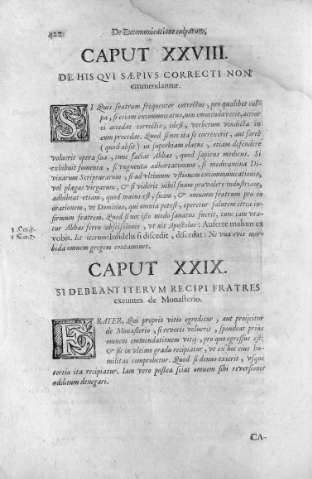 422 De Excommunicatione culparum,
CAPUT XXVIII.
DE HIS QVI SÆPIVS CORRECTI NON
emendantur.
SI Quis fratrum frequenter correctus, pro qualibet cul-
pa, si etiam excommunicatus, non emendaverit, acrior
ei accedat correctio, idest, verberum vindicta in
eum procedat. Quod si nec ita se correxerit, aut fortè
(quod absit) in superbiam elatus, etiam defendere
voluerit opera sua, tunc faciat Abbas, quod sapiens medicus. Si
exhibuit fomenta, si vnguenta adhortationum, si medicamina Di-
vinarum Scripturarum, si ad vltimum vstionem excommunicationis,
vel plagas virgarum, & si viderit nihil suam prævalere industriam,
adhibeat etiam, quod maius est, suam, & omnium fratrum pro eo
orationem, vt Dominus, qui omnia potest, operetur salutem circa in-
firmum fratrem. Quod si nec isto modo sanatus fuerit, tunc iam vta-
tur Abbas ferro abscissionis, vt ait Apostolus: Auferte malum ex
vobis. Et iterum: Infidelis si discedit, discedat: Ne vna ovis mor-
bida omnem gregem contaminet.
CAPUT XXIX.
SI DEBEANT ITERVM RECIPI FRATRES
exeuntes de Monasterio.
FRATER, Qui proprio vitio egreditur, aut proijcitur
de Monasterio, si reverti voluerit, spondeat prius
omnem emendationem vitij, pro quo egressus est:
& sic in vltimo gradu recipiatur, vt ex hoc eius hu-
militas comprobetur. Quod si denuo exierit, vsque
tertio ita recipiatur. Iam vero postea sciat omnem sibi reversionis
aditum denegari.
CA-